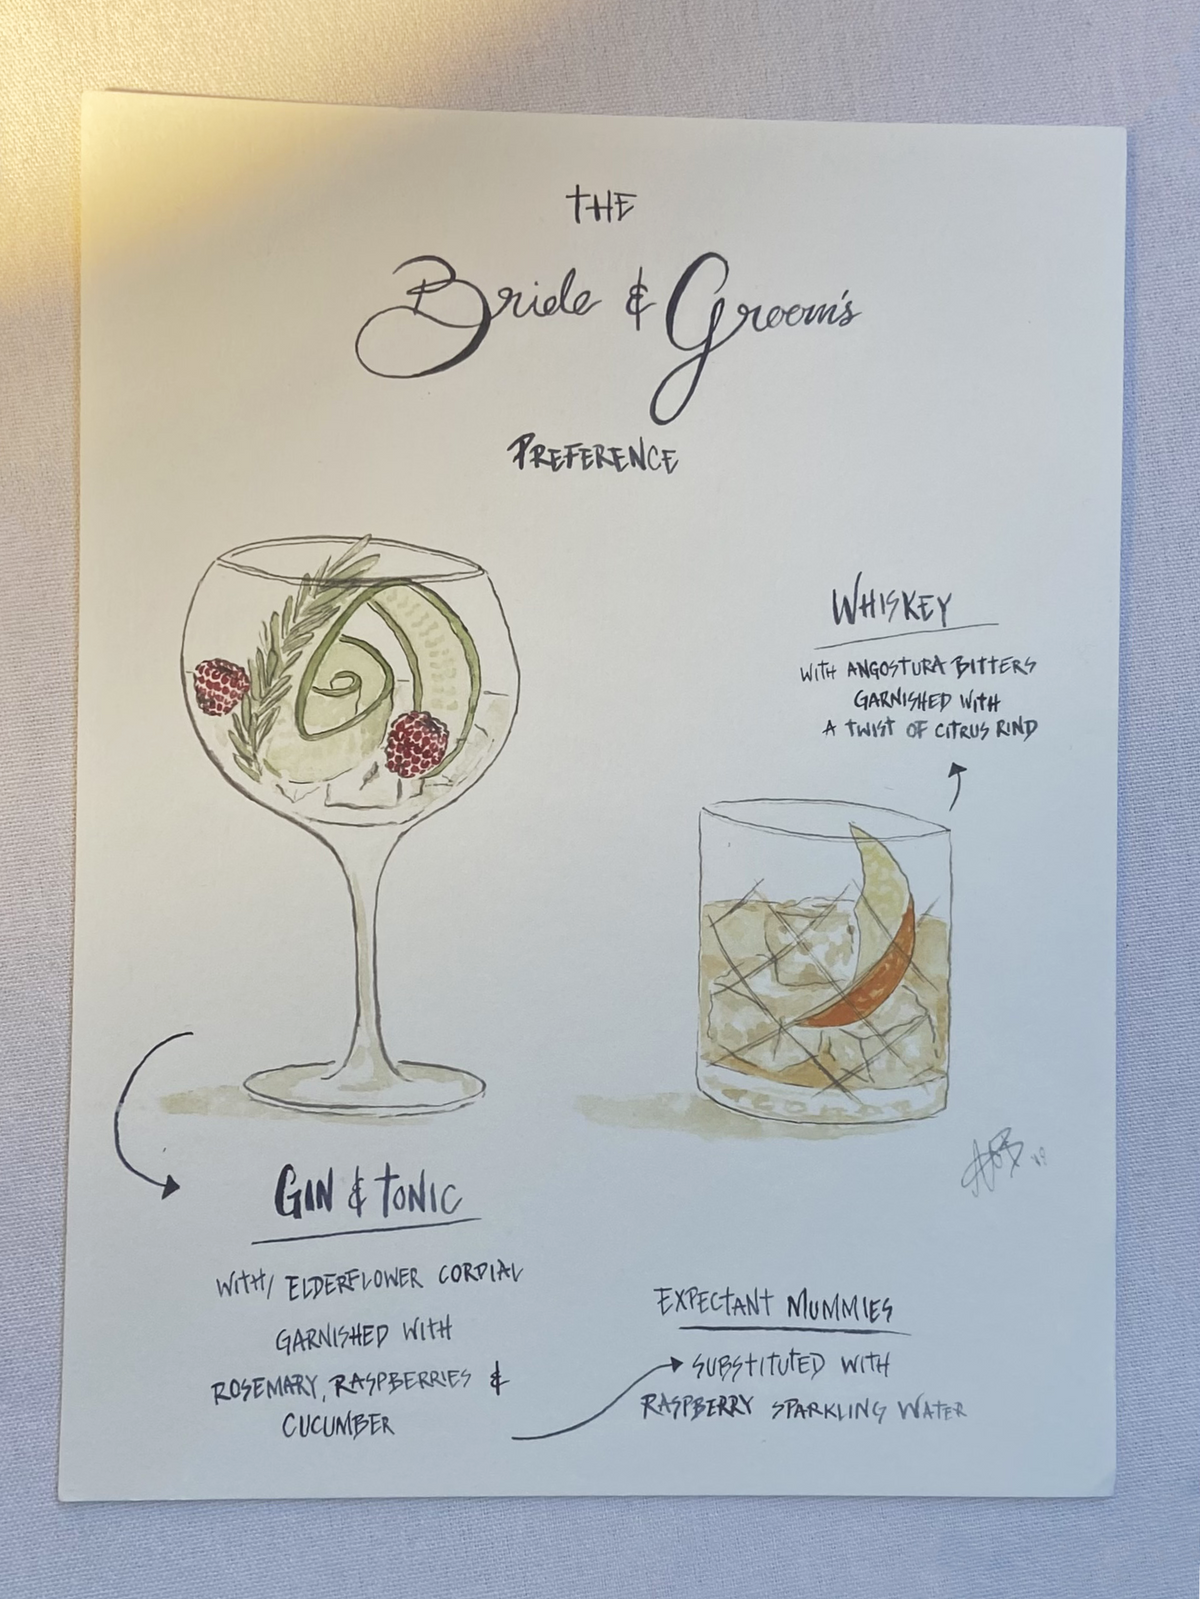 THE
Bride & Groom's
PREFERENCE
WHISKEY
WITH ANGOSTURA BITTERS
GARNISHED WITH
A TWIST OF CITRUS RIND
GIN & TONIC
WITH/ ELDERFLOWER CORDIAL
GARNISHED WITH
ROSEMARY, RASPBERRIES &
CUCUMBER
EXPECTANT MUMMIES
SUBSTITUTED WITH
RASPBERRY SPARKLING WATER